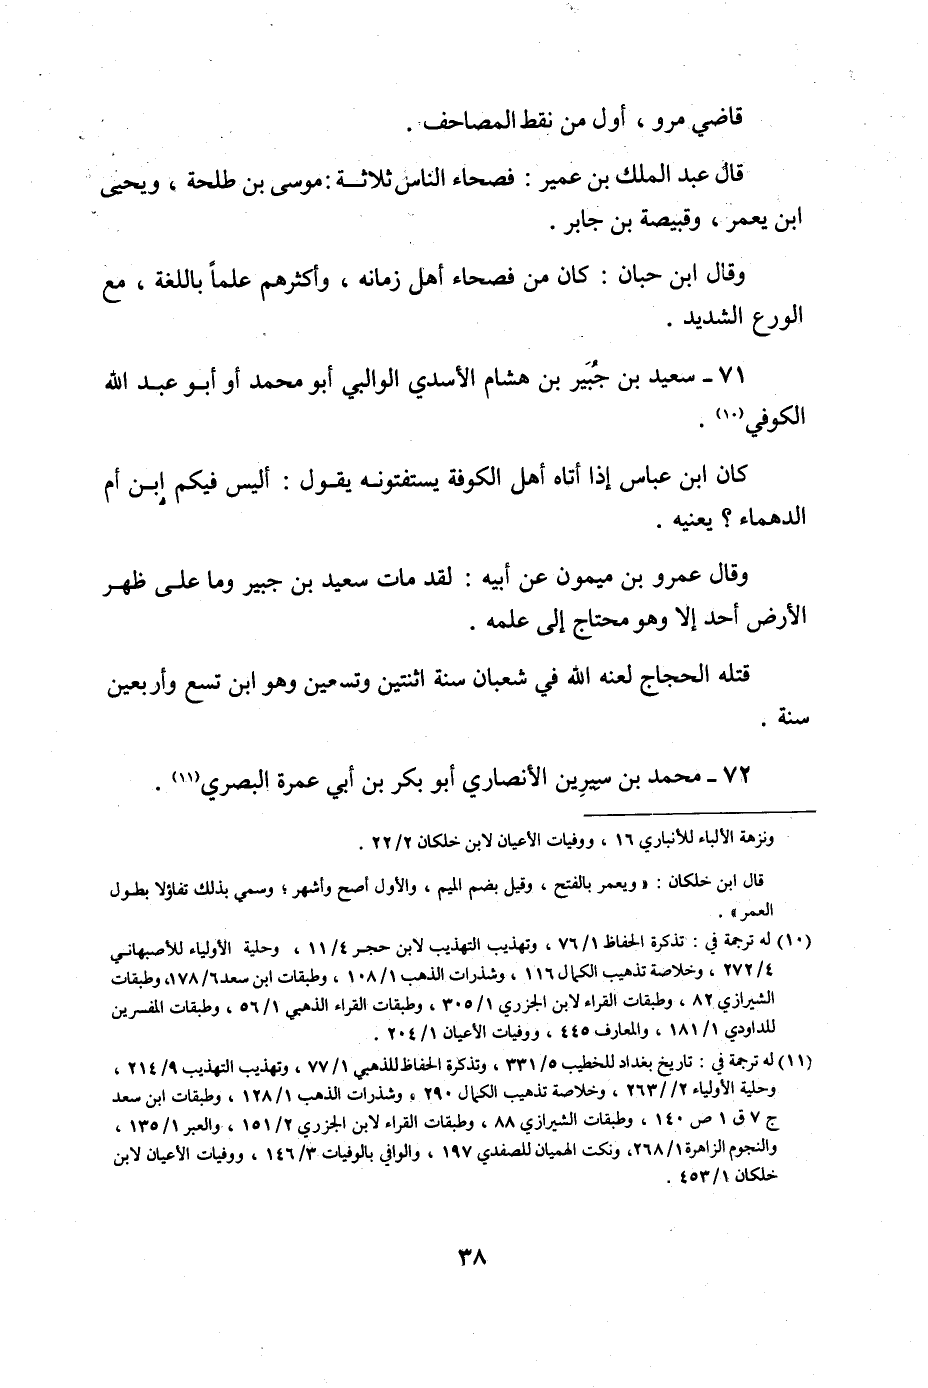 قاضي مرو ، أول من نقط المصاحف .
قال عبد الملك بن عمير : فصحاء الناس ثلاثـــة : موسى بن طلحة ، ويحيى
ابن يعمر ، وقبيصة بن جابر .
وقال ابن حبان : كان من فصحاء أهل زمانه ، وأكثرهم علماً باللغة ، مع
الورع الشديد .
٧١ ـ سعيد بن جُبَير بن هشام الأسدي الوالبي أبو محمد أو أبـو عبـد الله
الكوفي(١٠) .
كان ابن عباس إذا أتاه أهل الكوفة يستفتونـه يقـول : أليس فيكم إبـن أم
الدهماء ؟ يعنيه .
وقال عمرو بن ميمون عن أبيه : لقد مات سعيد بن جبير وما علـى ظهـر
الأرض أحد إلا وهو محتاج إلى علمه .
قتله الحجاج لعنه الله في شعبان سنة اثنتين وتسعين وهو ابن تسع وأربعين
سنة .
٧٢ ـ محمد بن سِيرِين الأنصاري أبو بكر بن أبي عمرة البصري(١١) .
ونزهة الألباء للأنباري ١٦ ، ووفيات الأعيان لابن خلكان ٢٢/٢ .
قال ابن خلكان : « ويعمر بالفتح ، وقيل بضم الميم ، والأول أصح وأشهر ؛ وسمي بذلك تفاؤلا بطول
العمر » .
(١٠) له ترجمة في : تذكرة الحفاظ ٧٦/١ ، وتهذيب التهذيب لابن حجـر ١١/٤ ، وحلية الأولياء للأصبهانـي
٢٧٢/٤ ، وخلاصة تذهيب الكمال ١١٦ ، وشذرات الذهب ١٠٨/١ ، وطبقات ابن سعد ١٧٨/٦، وطبقات
الشيرازي ٨٢ ، وطبقات القراء لابن الجزري ٣٠٥/١ ، وطبقات القراء الذهبي ٥٦/١ ، وطبقات المفسرين
للداودي ١٨١/١ ، والمعارف ٤٤٥ ، ووفيات الأعيان ٢٠٤/١ .
(١١) له ترجمة في : تاريخ بغداد للخطيب ٣٣١/٥ ، وتذكرة الحفاظ للذهبي ٧٧/١ ، وتهذيب التهذيب ٢١٤/٩ ،
وحلية الأولياء ٢٦٣//٢ ، وخلاصة تذهيب الكمال ٢٩٠ ، وشذرات الذهب ١٢٨/١ ، وطبقات ابن سعد
ج ٧ ق ١ ص ١٤٠ ، وطبقات الشيرازي ٨٨ ، وطبقات القراء لابن الجزري ١٥١/٢ ، والعبر ١٣٥/١ ،
والنجوم الزاهرة ٢٦٨/١، ونكت الهميان للصفدي ١٩٧ ، والوافي بالوفيات ١٤٦/٣ ، ووفيات الأعيان لابن
خلكان ٤٥٣/١ .
٣٨